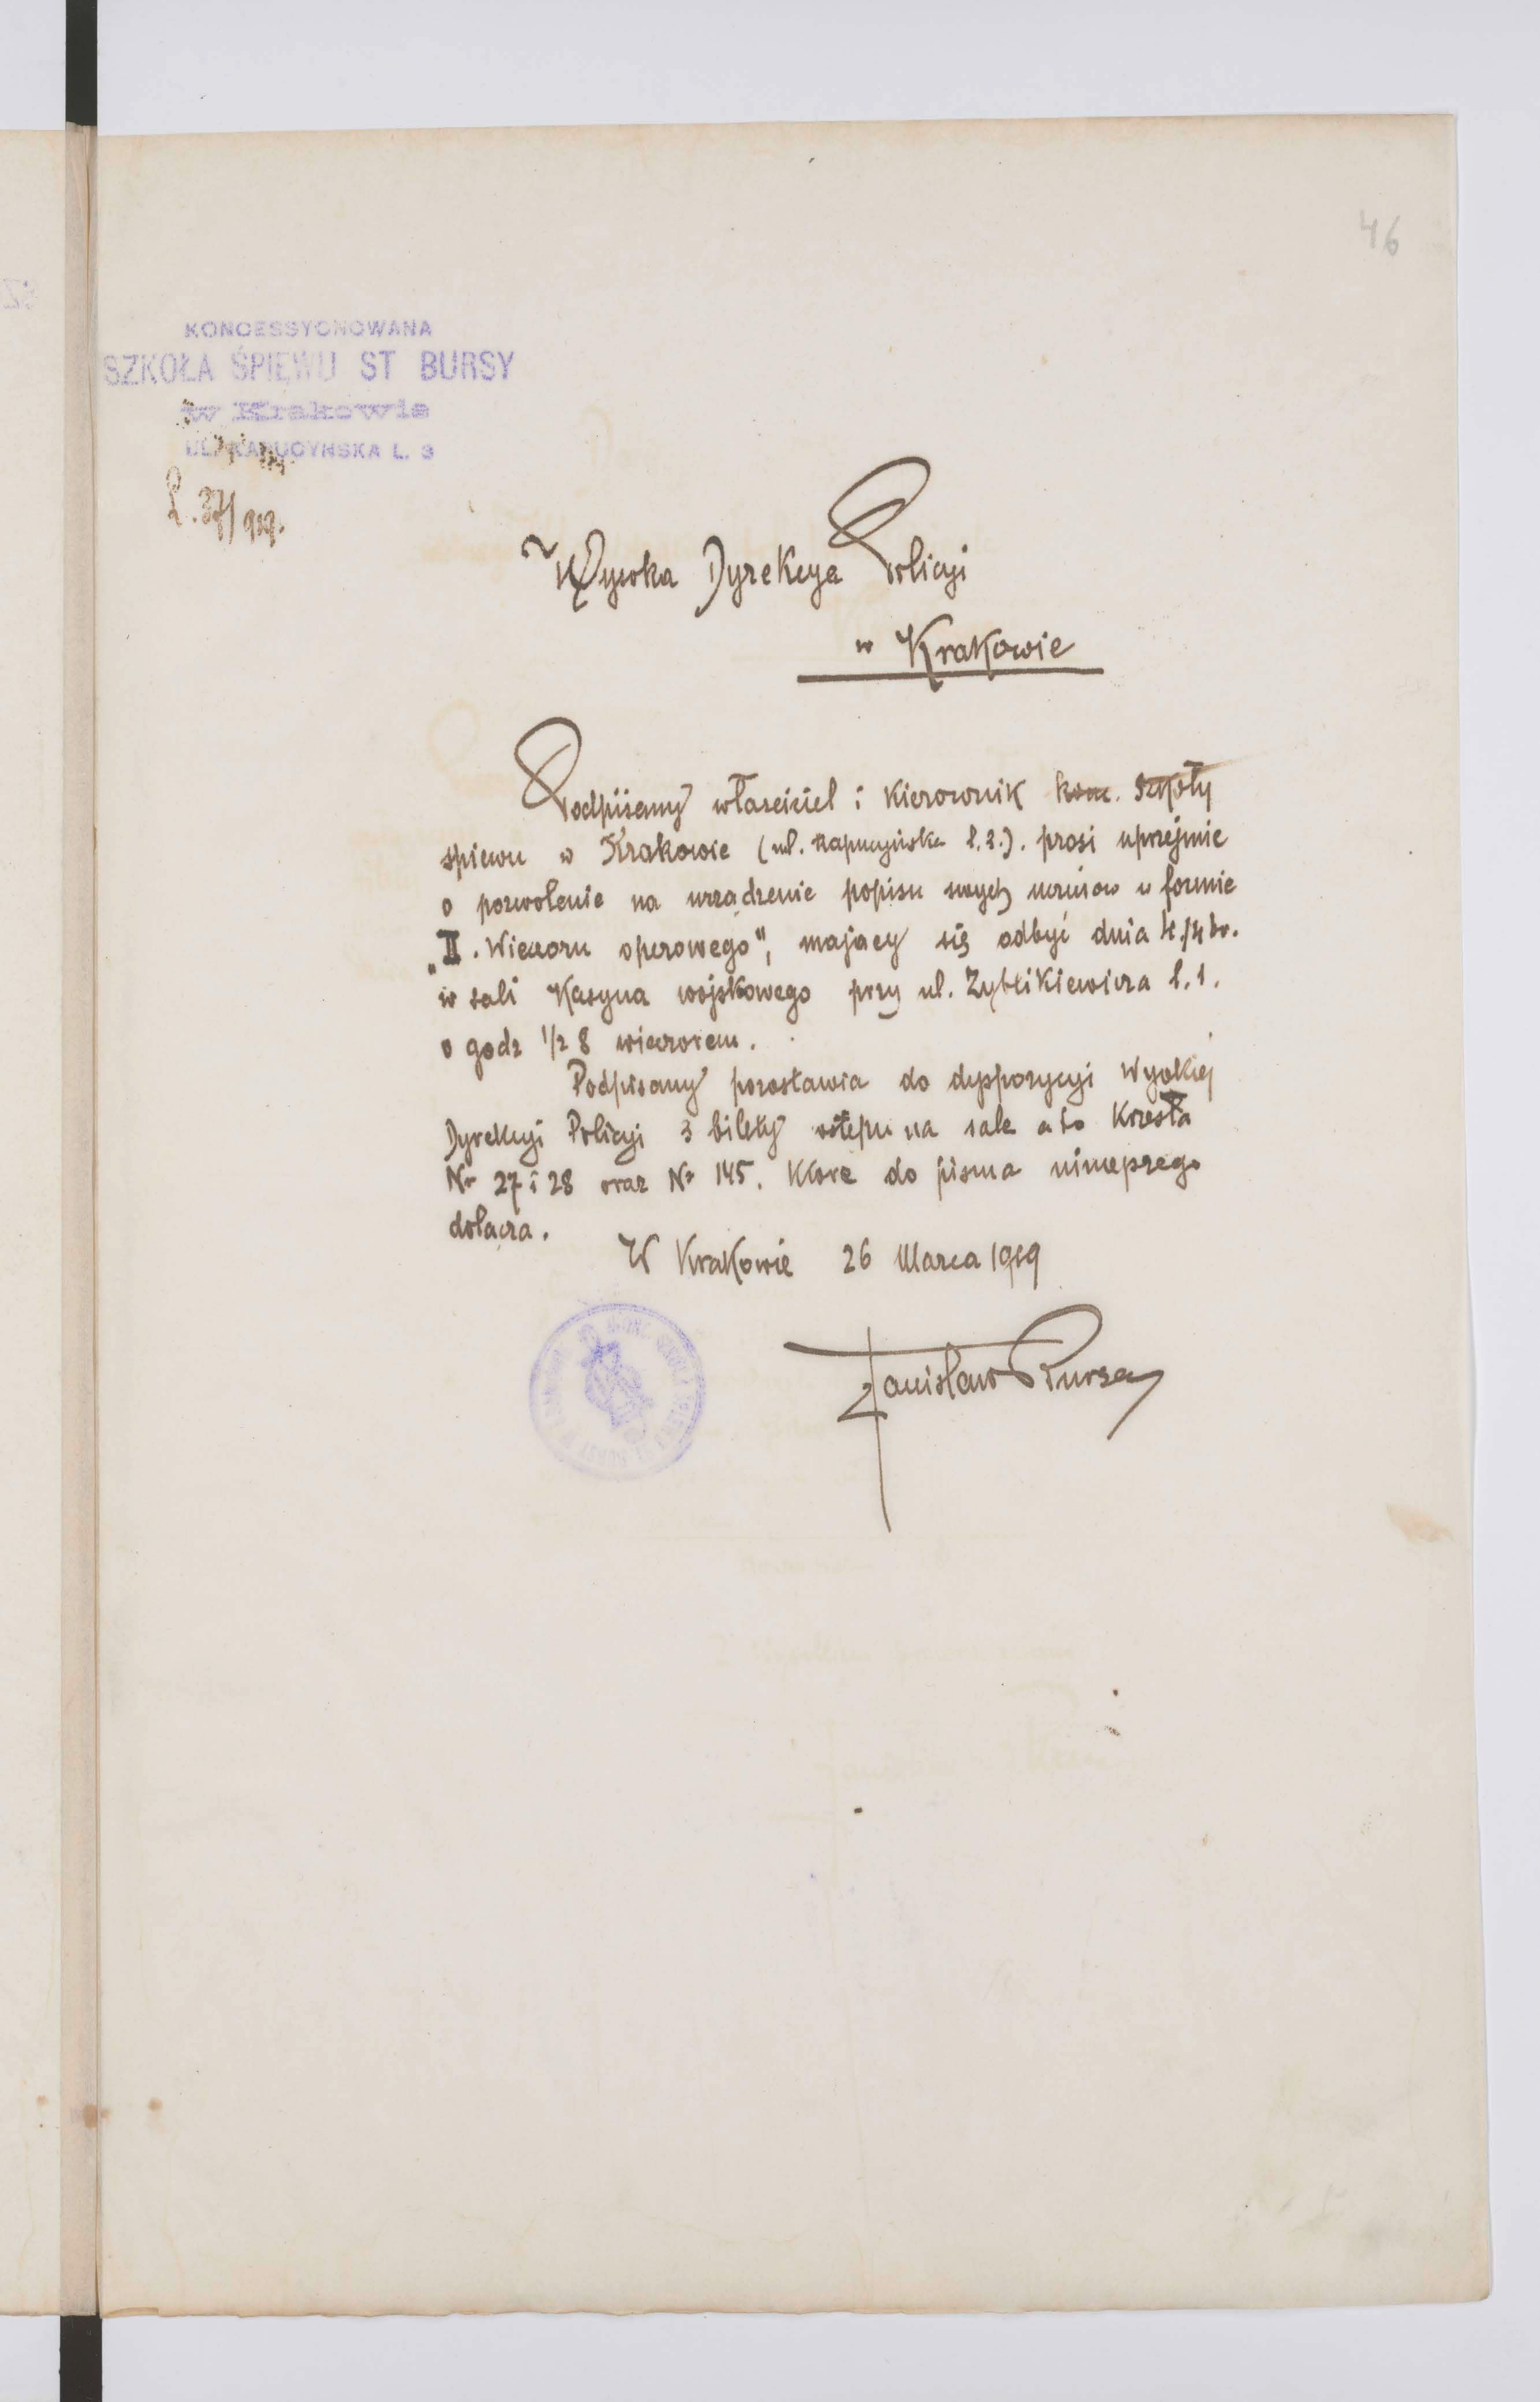 46
KONCESSYONOWANA
SZKOŁA ŚPIEWU ST BURSY
w Krakowie
UL. KAPUCYŃSKA L. 3
L. 37/919.
Wysoka Dyrekcya Policyi
w Krakowie
Podpisany właściciel i kierownik konc. szkoły
śpiewu w Krakowie (ul. Kapucyńska l. 3.). prosi uprzejmie
o pozwolenie na urządzenie popisu swych uczniów w formie
„II. Wieczoru operowego", mający się odbyć dnia 4./4 br.
w sali Kasyna wojskowego przy ul. Zyblikiewicza l. 1.
o godz 1/2 8 wieczorem.
Podpisany pozostawia do dyspozycyi Wysokiej
Dyrekcyi Policyi 3 bilety wstępu na sale a to Krzesła
Nr 27 i 28 oraz Nr 145. Które do pisma
dołącza.
W Krakowie 26 Marca 1919
Stanisław Bursa